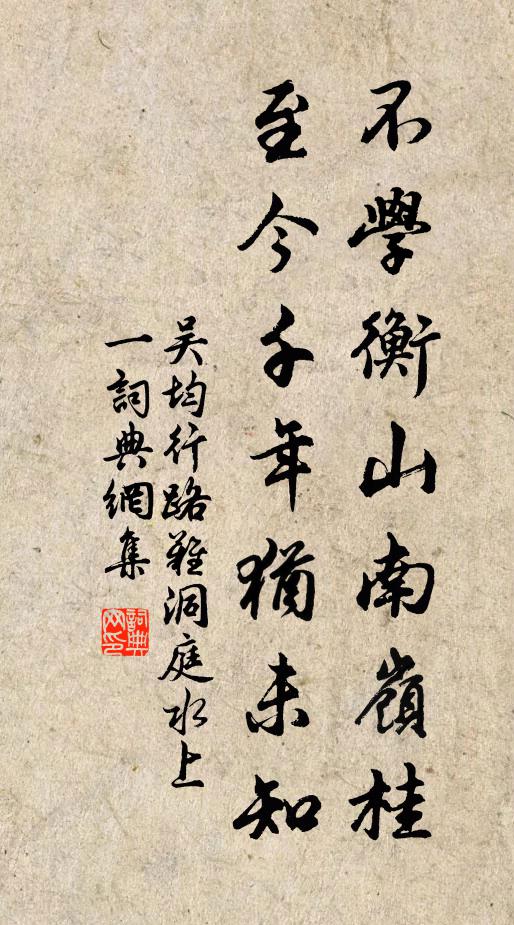 不學衡山南嶺桂
至今千年猶未知
吴均行路難洞庭水上
一詞典網集
詞典
网印